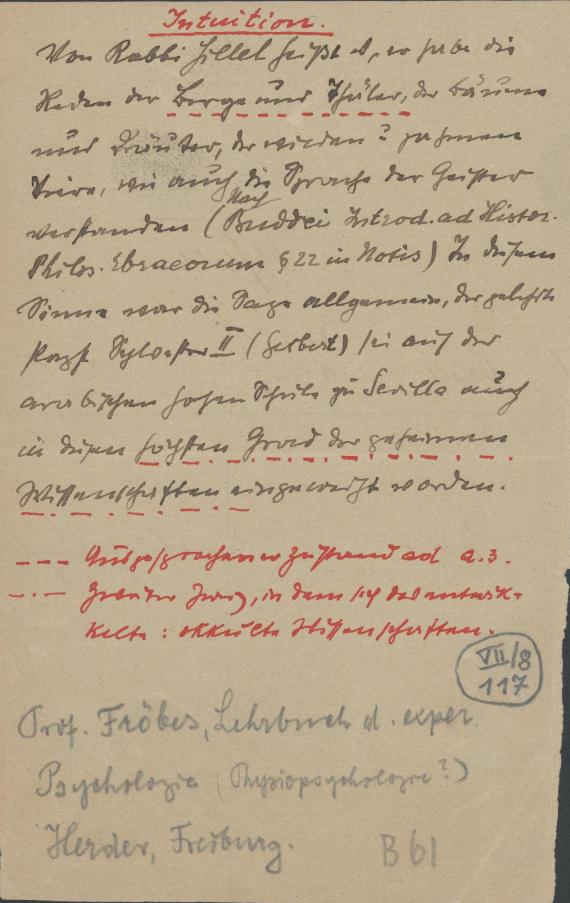 Intuition.
Von Rabbi Hillel heißt es, er habe die
Reden der Berge und Thäler, der Bäume
und Kräuter, der wilden? zahmen
Tiere, wie auch die Sprache der Geister
verstanden (Nach Buddei Introd. ad Histor.
Philos. Ebraeorum § 22 in Notis) In diesem
Sinne war die Sage allgemein, der gelehrte
Papst Sylvester II (Gerbert) sei auf der
arabischen hohen Schule zu Sevilla auch
in diesen höchsten Grad der geheimen
Wissenschaften eingeweiht worden.
--- Ausgesprochener Zustand ad a.3.
-.- Zweig, in dem sich das entwik-
kelte: okkulte Wissenschaften.
VII/8
117
Prof. Fröbes, Lehrbuch d. exper.
Psychologie (Physiopsychologie?)
Herder, Freiburg. B61